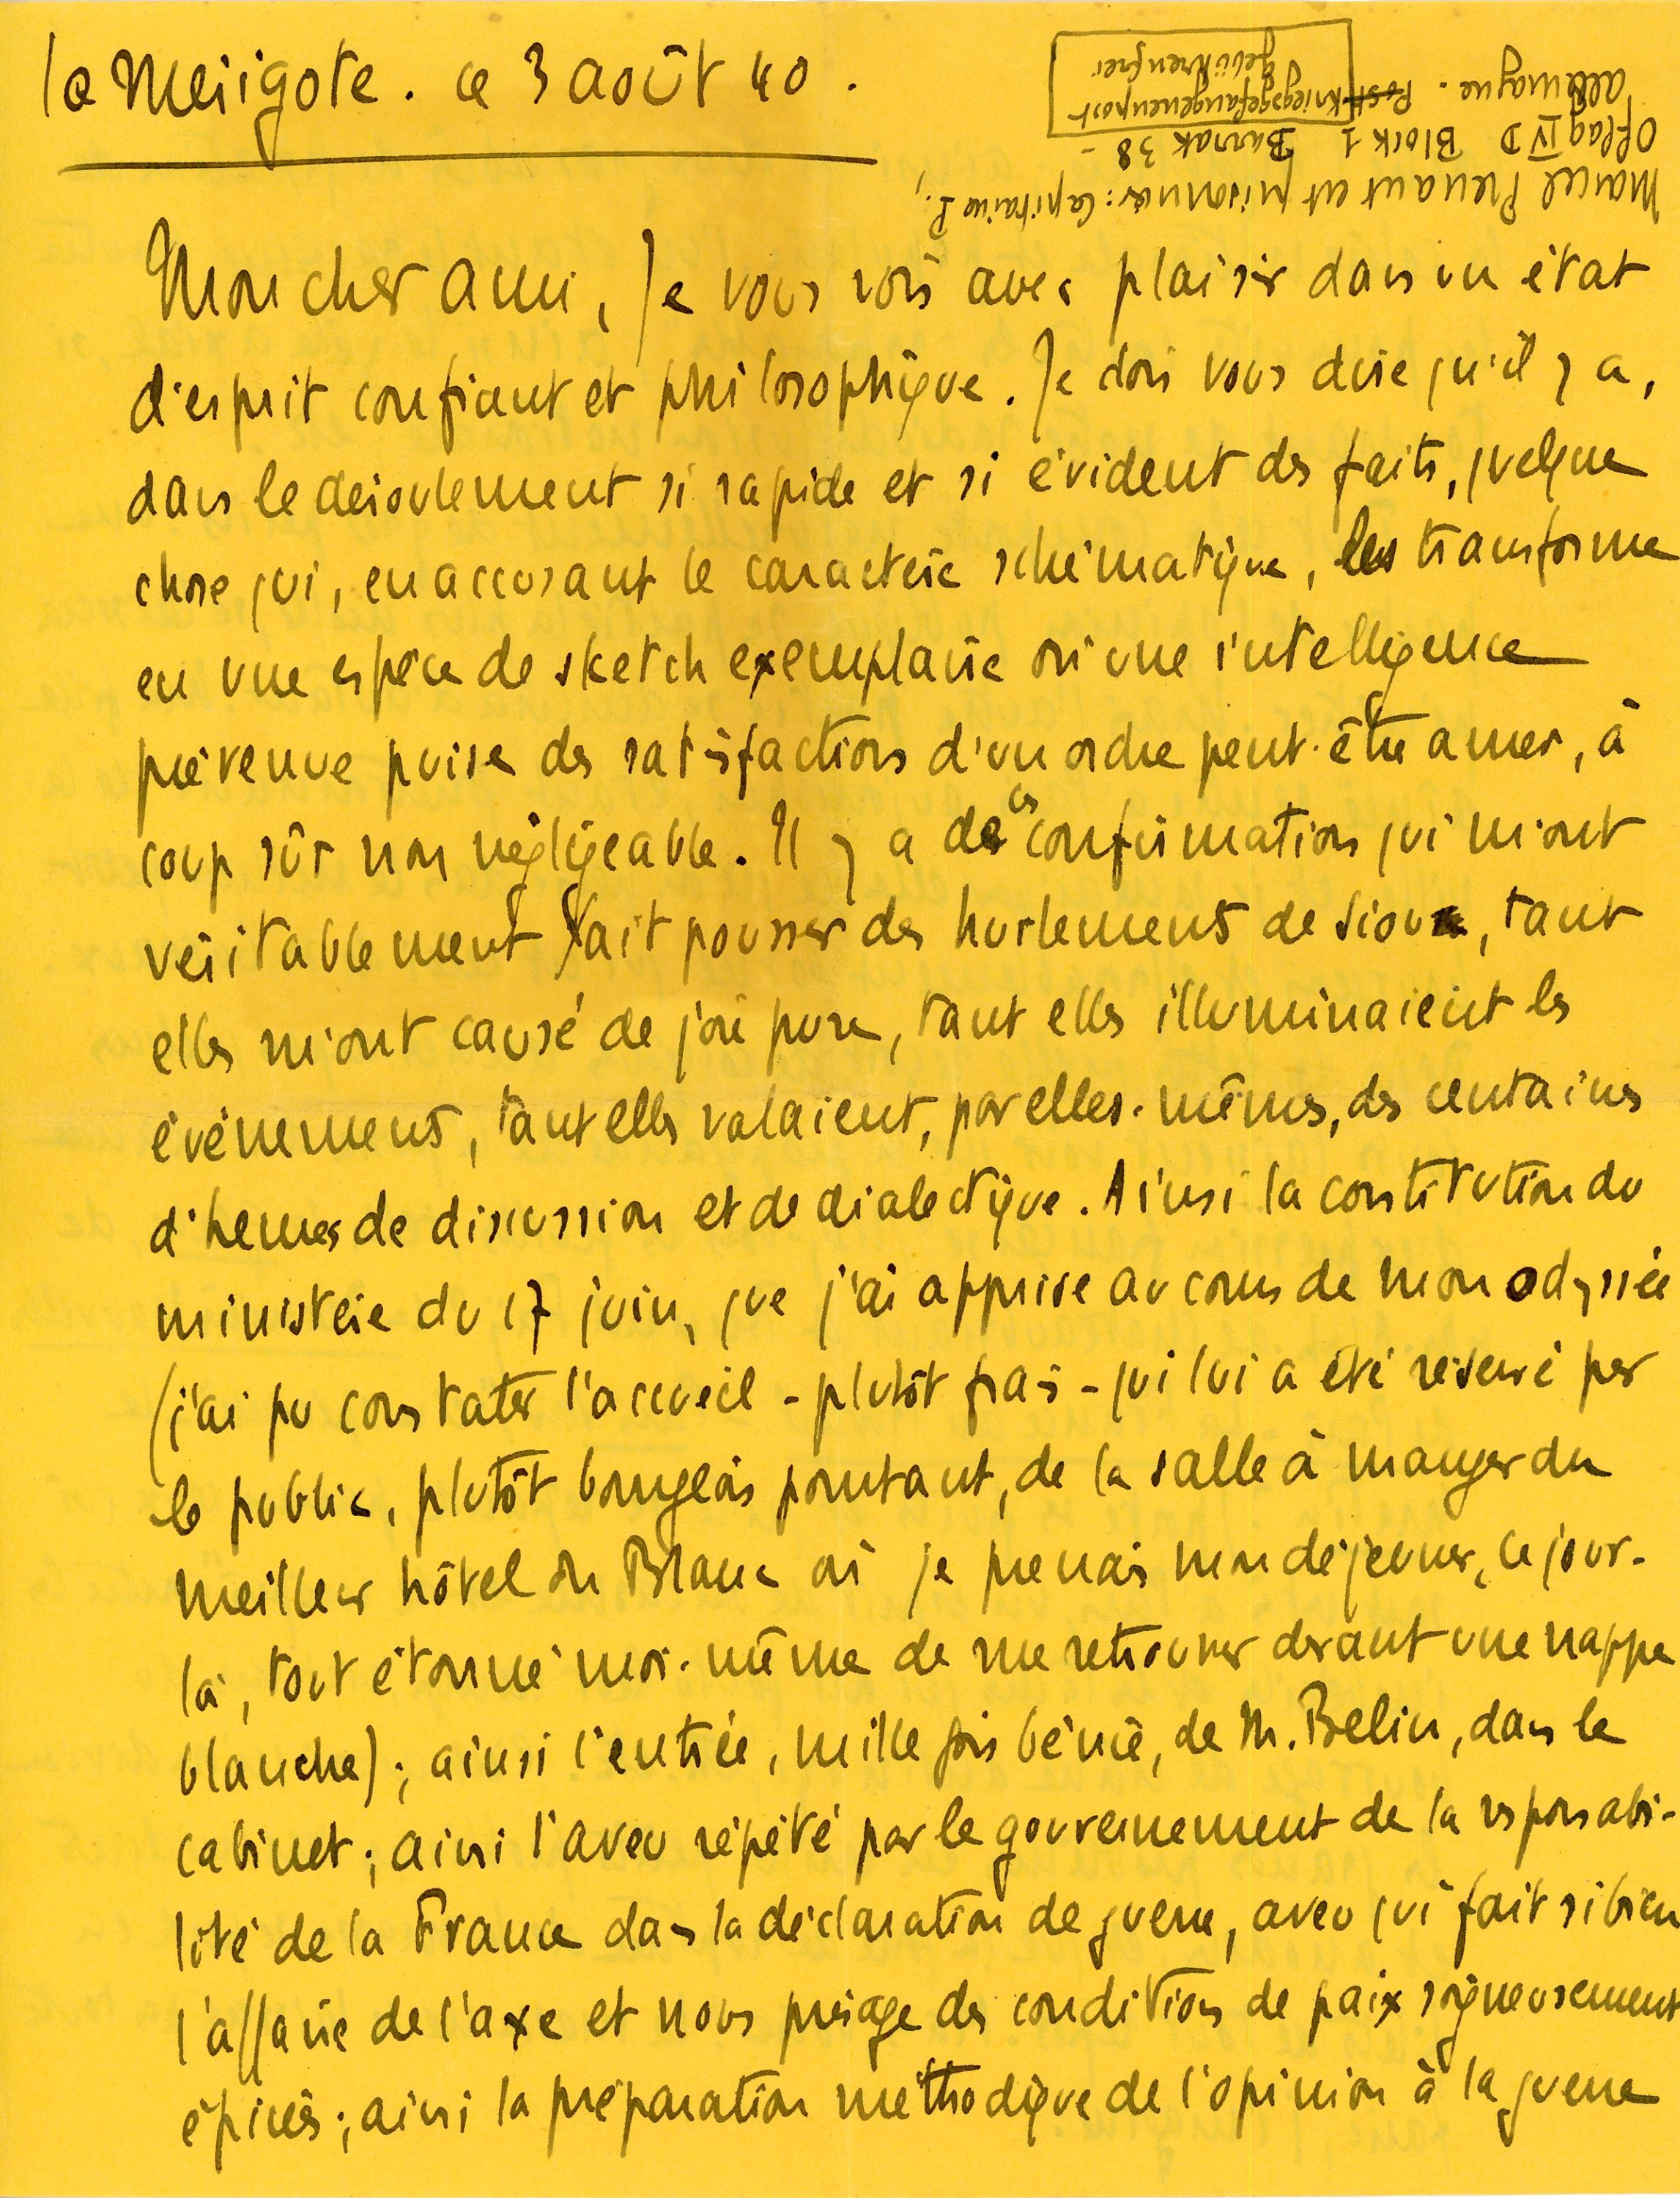 la Meiigote. ce 3 août 40.
Marcel Prenant est prisonnier : Capitaine P.,
Oflag IV D Block 1 Barrak 38 -
Allemagne. Post Kriegsgefangenenpost
gebührenfrei
Mon cher ami, Je vous vois avec plaisir dans un état
d'esprit confiant et philosophique. Je dois vous dire qu'il y a,
dans le déroulement si rapide et si évident des faits, quelque
chose qui, en accusant le caractère schématique, les transforme
en une espèce de sketch exemplaire où une intelligence
prévenue puise des satisfactions d'un ordre peut-être amer, à
coup sûr non négligeable. Il y a de ces confirmations qui m'ont
véritablement fait pousser des hurlements de Sioux, tant
elles m'ont causé de joie pure, tant elles illuminaient les
événements, tant elles valaient, par elles-mêmes, des centaines
d'heures de discussion et de dialectique. Ainsi la constitution du
ministère du 17 juin, que j'ai apprise au cours de mon odyssée
(j'ai pu constater l'accueil - plutôt frais - qui lui a été réservé par
le public, plutôt bourgeois pourtant, de la salle à manger du
meilleur hôtel du Blanc où je prenais mon déjeuner, ce jour-
là, tout étonné moi-même de me retrouver devant une nappe
blanche) ; ainsi l'entrée, mille fois bénie, de M. Belin, dans le
cabinet ; ainsi l'aveu répété par le gouvernement de la responsabi-
lité de la France dans la déclaration de guerre, aveu qui fait si bien
l'affaire de l'axe et nous présage des conditions de paix soigneusement
épicées ; ainsi la préparation méthodique de l'opinion à la guerre